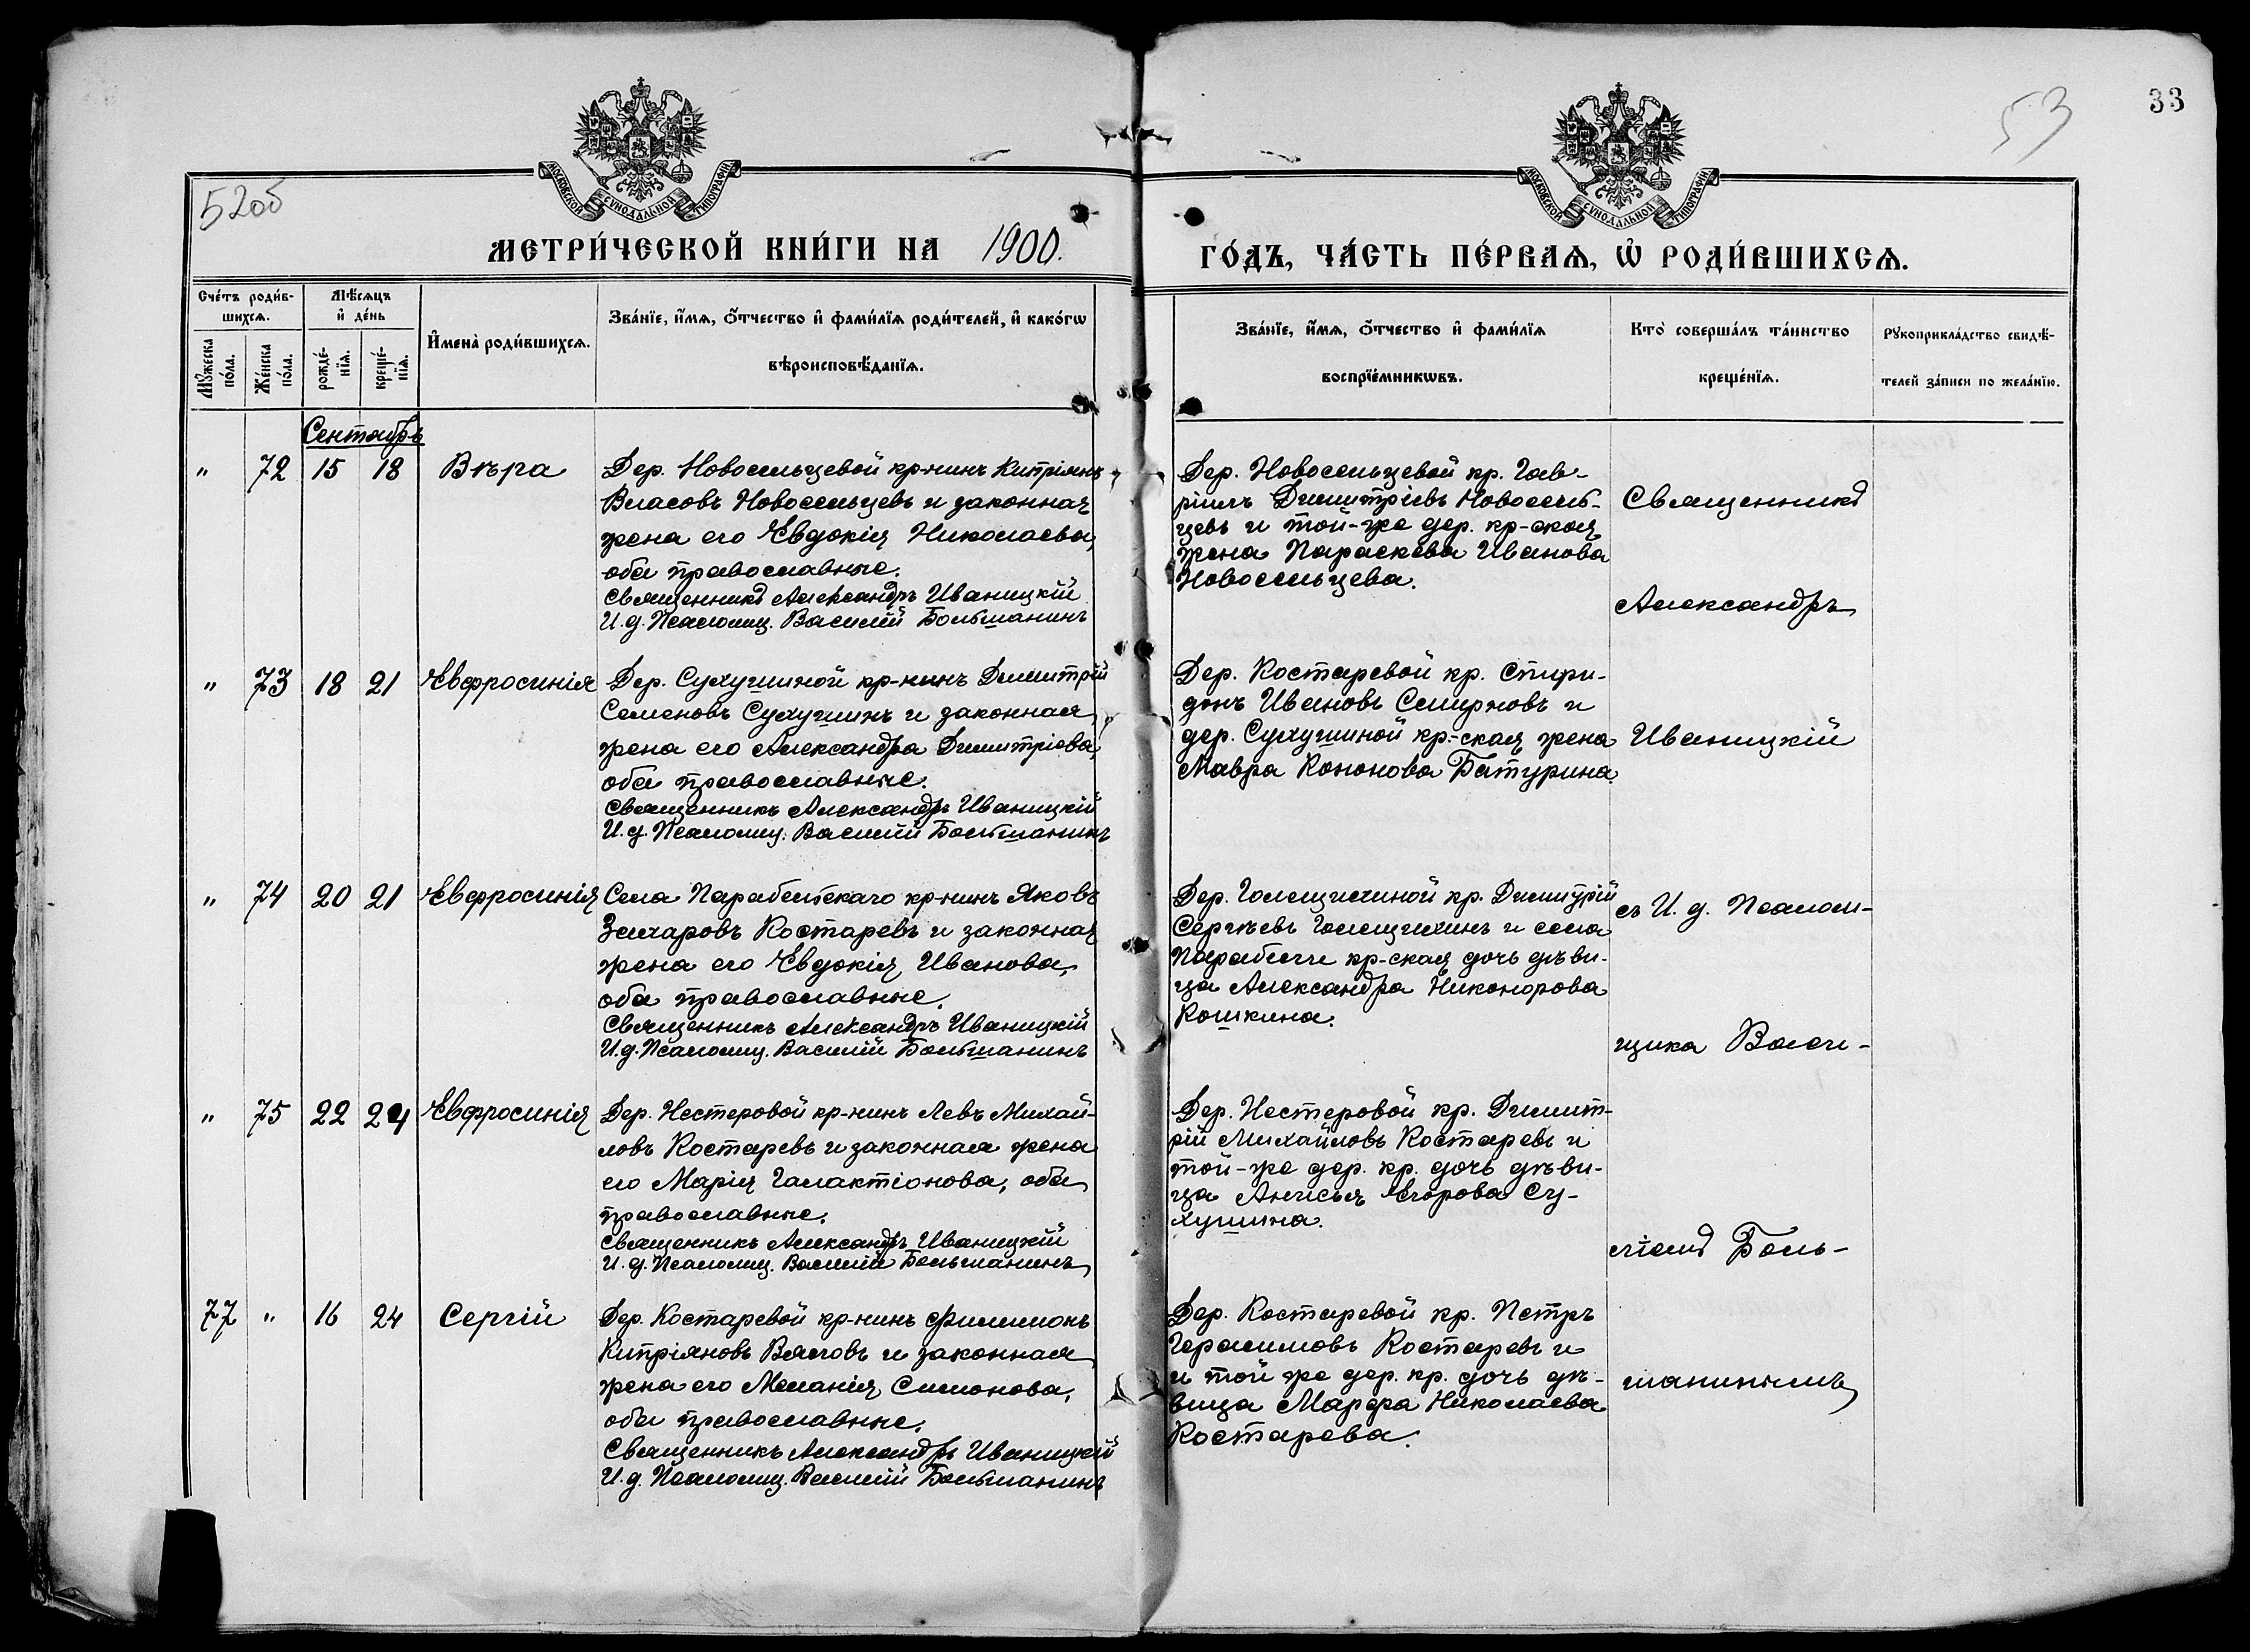 33
53
52об
МОСКОВСКОЙ СУНОДАЛЬНОЙ ТИПОГРАФІИ
МОСКОВСКОЙ СУНОДАЛЬНОЙ ТИПОГРАФІИ
МЕТРИ́ЧЕСКОЙ КНИ́ГИ НА 1900.
ГО́ДЪ, ЧА́СТЬ ПЕ́РВАѦ, Ѡ҆ РОДИ́ВШИХСѦ.
Сче́тъ роди́в-
шихсѧ.
Мѣ́сѧцъ
и҆ де́нь
Мꙋ́жеска
по́ла.
Же́нска
по́ла.
рожде́-
нїѧ.
креще́-
нїѧ.
И҆мена̀ роди́вшихсѧ.
Зва́нїе, и҆́мѧ, ѻ҆́тчество и҆ фами́лїѧ роди́телей, и҆ како́гѡ
вѣроисповѣ́данїѧ.
Зва́нїе, и҆́мѧ, ѻ҆́тчество и҆ фами́лїѧ
воспрїе́мникѡвъ.
Кто̀ соверша́лъ та́инство
креще́нїѧ.
Рꙋкоприкла́дство свидѣ́-
телей за́писи по жела́нїю.
Сентябрь
" 72 15 18 Вѣра
Дер. Новосельцевой кр-нинъ Кипріянъ
Власовъ Новосельцевъ и законная
жена его Евдокія Николаева,
оба православные.
Священникъ Александръ Иваницкій
И. д. Псаломщ. Василій Большанинъ
Дер. Новосельцевой кр. Гав-
ріилъ Димитріевъ Новосель-
цевъ и той-же дер. кр-ская
жена Параскева Иванова
Новосельцева.
Священникъ
Александръ
" 73 18 21 Евфросинія
Дер. Сухушиной кр-нинъ Димитрій
Семеновъ Сухушинъ и законная
жена его Александра Димитріева,
оба православные.
Священникъ Александръ Иваницкій
И. д. Псаломщ. Василій Большанинъ
Дер. Костаревой кр. Спири-
донъ Ивановъ Смирновъ и
дер. Сухушиной кр.-ская жена
Мавра Кононова Батурина.
Иваницкій
" 74 20 21 Евфросинія
Села Парабельскаго кр-нинъ Яковъ
Захаровъ Костаревъ и законная
жена его Евдокія Иванова,
оба православные.
Священникъ Александръ Иваницкій
И. д. Псаломщ. Василій Большанинъ
Дер. Голещихиной кр. Димитрій
Сергѣевъ Голещихинъ и села
Парабели кр-ская дочь дѣви-
ца Александра Никонорова
Кошкина.
съ И. д. Псалом-
щика Васи-
" 75 22 24 Евфросинія
Дер. Нестеровой кр-нинъ Левъ Михай-
ловъ Костаревъ и законная жена
его Марія Галактіонова, оба
православные.
Священникъ Александръ Иваницкій
И. д. Псаломщ. Василій Большанинъ
Дер. Нестеровой кр. Димит-
рій Михайловъ Костаревъ и
той-же дер. кр. дочь дѣви-
ца Анисья Егорова Су-
хушина.
ліемъ Боль-
77 " 16 24 Сергій
Дер. Костаревой кр-нинъ Филимонъ
Кипріяновъ Вяловъ и законная
жена его Меланія Симонова,
оба православные.
Священникъ Александръ Иваницкій
И. д. Псаломщ. Василій Большанинъ
Дер. Костаревой кр. Петръ
Герасимовъ Костаревъ и
и той же дер. кр. дочь дѣ-
вица Марфа Николаева
Костарева.
шанинымъ